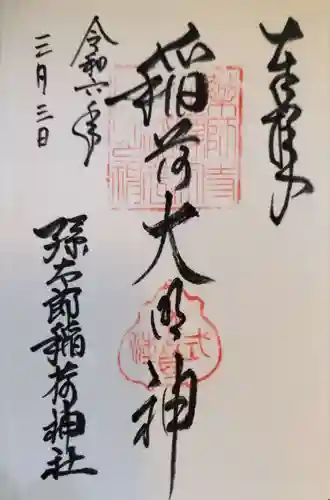 奉拝
稲荷大明神
令和六年
三月三日
孫太郎稲荷神社